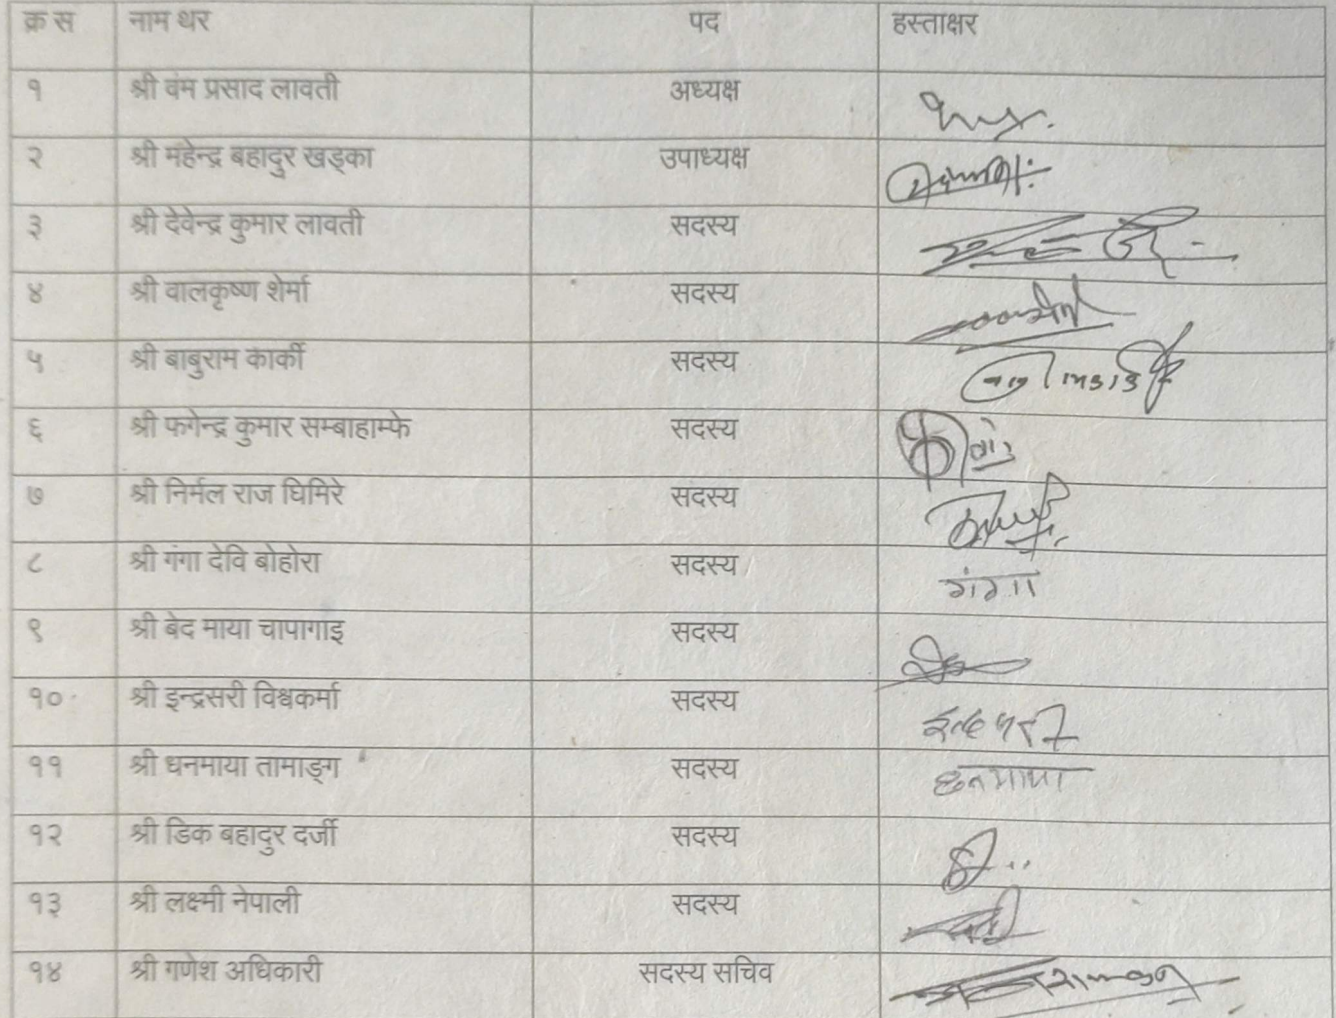 क्र स नाम थर पद हस्ताक्षर
१ श्री वम प्रसाद लावती अध्यक्ष
२ श्री महेन्द्र बहादुर खड्का उपाध्यक्ष
३ श्री देवेन्द्र कुमार लावती सदस्य
४ श्री वालकृष्ण शेर्मा सदस्य
५ श्री बाबुराम कार्की सदस्य
६ श्री फगेन्द्र कुमार सम्बाहाम्फे सदस्य
७ श्री निर्मल राज घिमिरे सदस्य
८ श्री गंगा देवि बोहोरा सदस्य गंगा
९ श्री बेद माया चापागाइ सदस्य
१० श्री इन्द्रसरी विश्वकर्मा सदस्य
११ श्री धनमाया तामाङ्ग सदस्य धनमाया
१२ श्री डिक बहादुर दर्जी सदस्य
१३ श्री लक्ष्मी नेपाली सदस्य
१४ श्री गणेश अधिकारी सदस्य सचिव